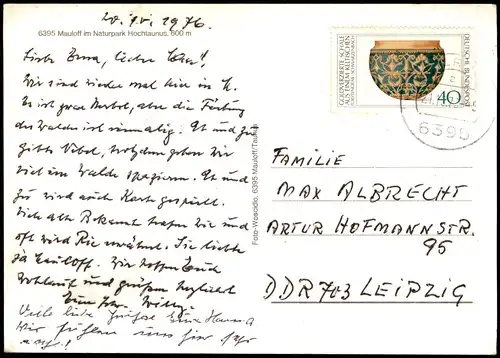 20. 10. 1976.
6395 Mauloff im Naturpark Hochtaunus, 600 m
Liebe Erna, lieber Max!
Wir sind wieder mal hier in M.
Es ist zwar Herbst, aber die Färbung
des Waldes ist einmalig. Ab und zu
gibts Nebel, trotzdem gehen wir
viel im Walde spazieren. Ab und
zu wird auch Karte gespielt.
Viele alte Bekannte treffen wir und
oft wird Rie erwähnt. Sie liebte
ja Mauloff. Wir hoffen Euch
wohlauf und grüßen herzlichst
Willy
Viele liebe Grüße Eure Hanna
Wir fühlen uns hier sehr
wohl!
Foto-Woscidlo, 6395 Mauloff/Taunus
GOLDVERZIERTE SCHALE
AUS EINEM KELTISCHEN
FÜRSTENGRAB, SCHWARZENBACH
DEUTSCHE BUNDESPOST
40
6395
FAMILIE
MAX ALBRECHT
ARTUR HOFMANNSTR.
95
DDR 703 LEIPZIG